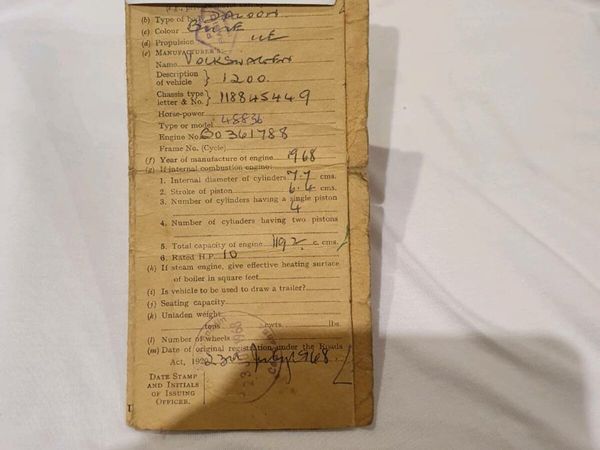 (b) Type of body SALOON
(c) Colour
(d) Propulsion ICE
(e) MANUFACTURER'S:
Name VOLKSWAGEN
Description of vehicle } 1200.
Chassis type letter & No. } 118845449
Horse-power
Type or model 48836
Engine No. D0361788
Frame No. (Cycle)
(f) Year of manufacture of engine 1968
(g) If internal combustion engine:
1. Internal diameter of cylinders 7.7 cms.
2. Stroke of piston 6.4 cms.
3. Number of cylinders having a single piston
4
4. Number of cylinders having two pistons
5. Total capacity of engine 1192 c. cms.
6. Rated H.P. 10
(h) If steam engine, give effective heating surface
of boiler in square feet
(i) Is vehicle to be used to draw a trailer?
(j) Seating capacity
(k) Unladen weight:
tons cwts. lbs.
(l) Number of wheels
(m) Date of original registration under the Roads
Act, 1920 23rd July 1968
DATE STAMP
AND INITIALS
OF ISSUING
OFFICER.